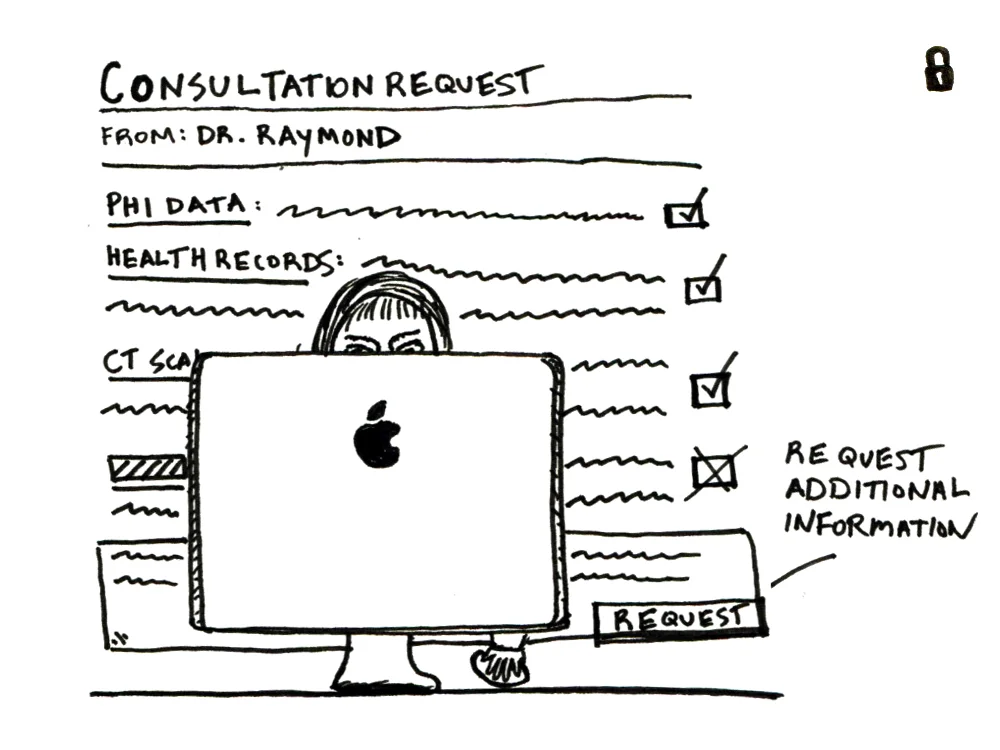 CONSULTATION REQUEST
FROM: DR. RAYMOND
PHI DATA:
HEALTH RECORDS:
CT
REQUEST
ADDITIONAL
INFORMATION
REQUEST